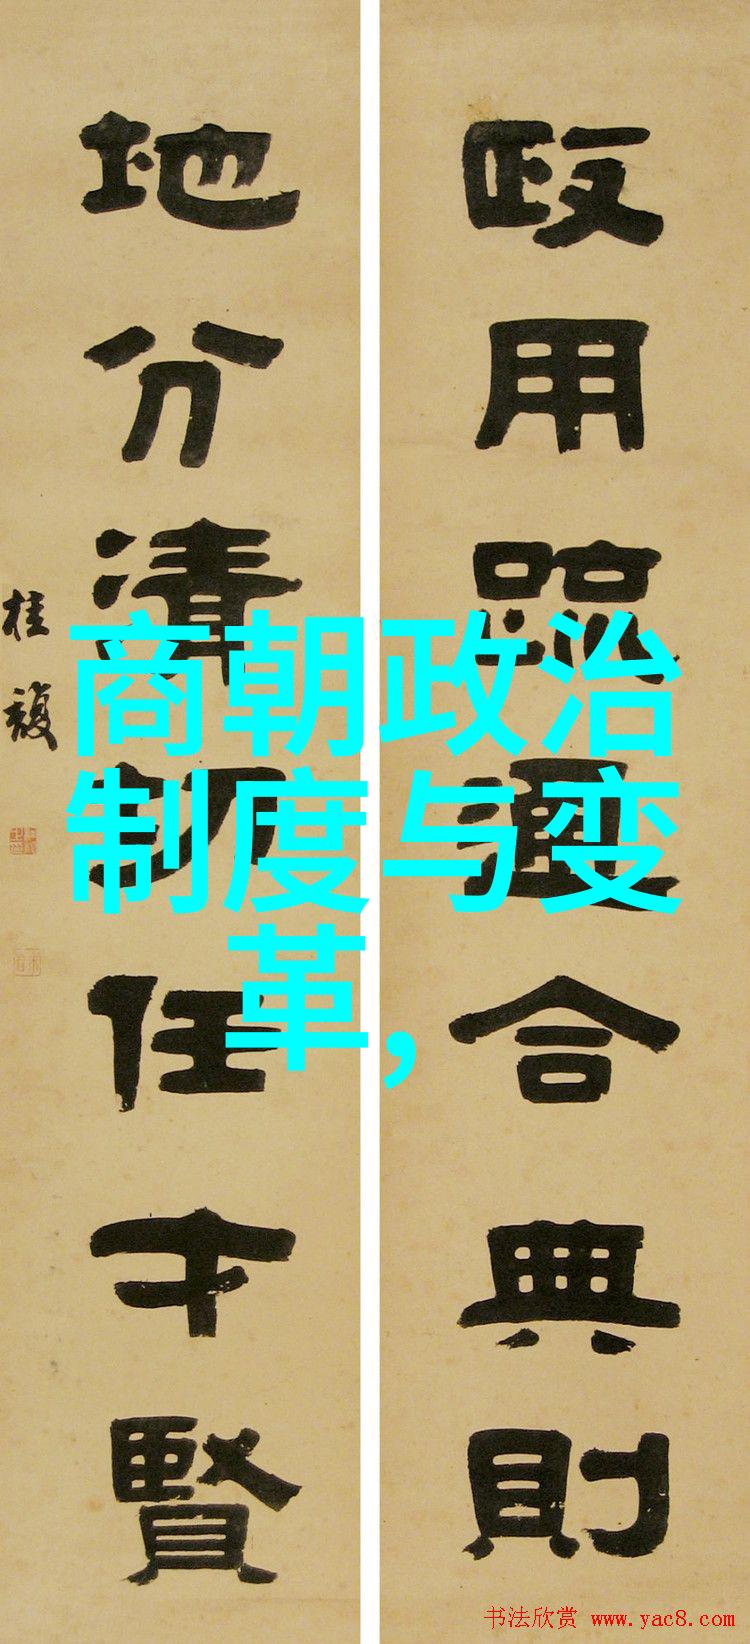 政用疏通合典則
地分清切任才賢
桂馥
商朝政治
制度与变
革,
书法欣赏 www.yac8.com